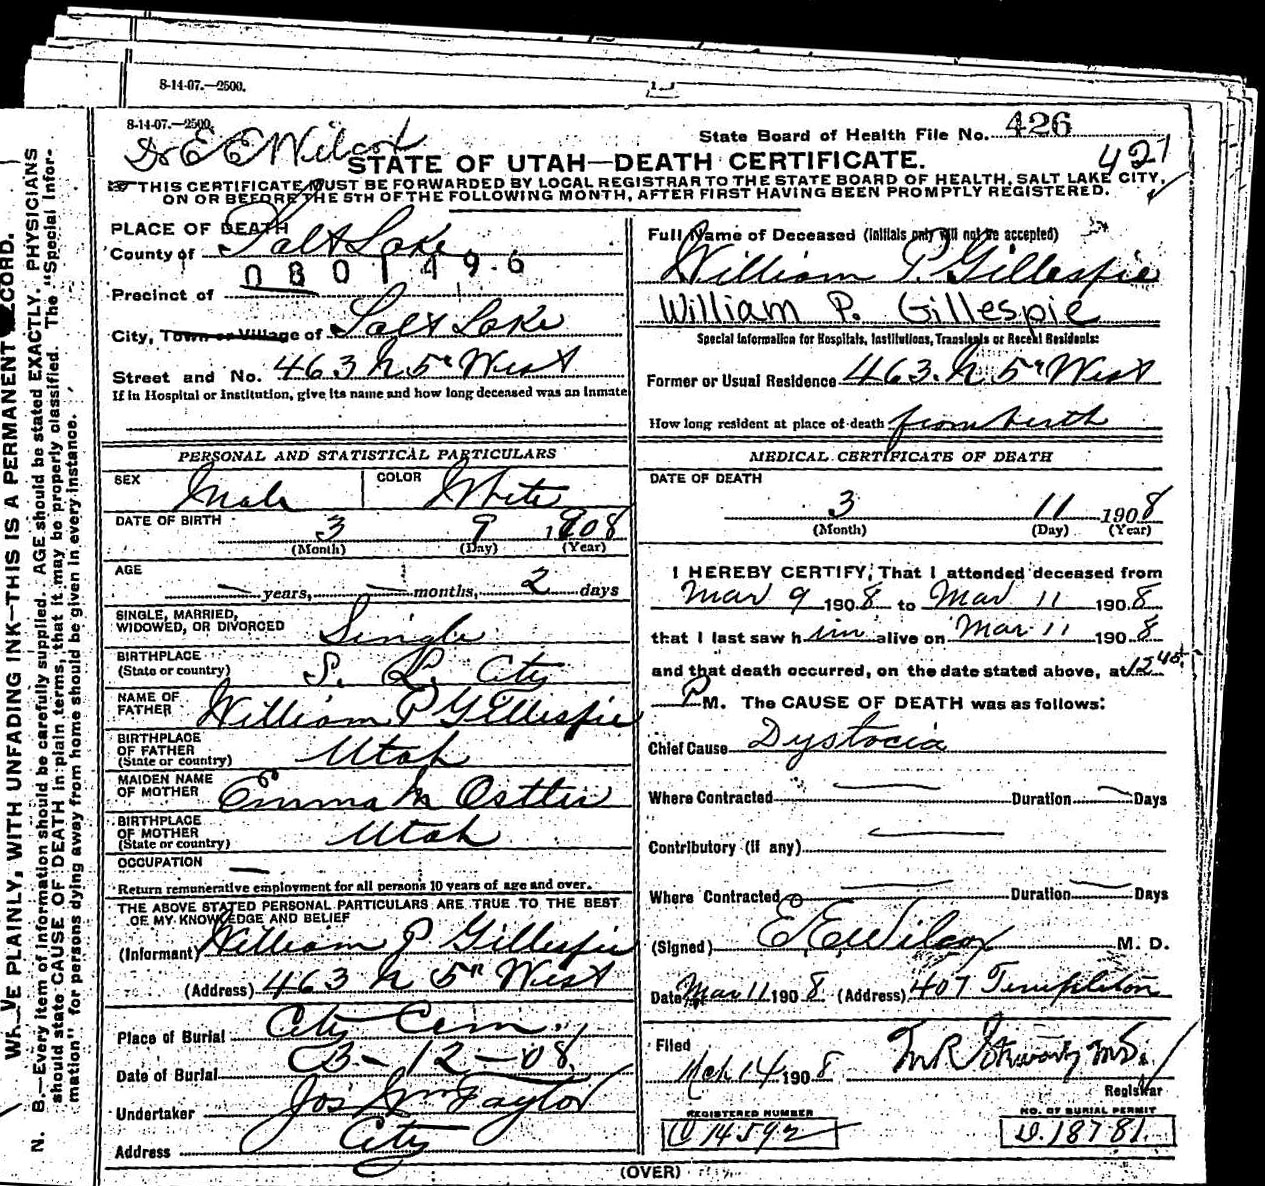 8-14-07.—2500.
8-14-07.—2500.
Dr E E Wilcox
State Board of Health File No. 426
427
STATE OF UTAH—DEATH CERTIFICATE.
THIS CERTIFICATE MUST BE FORWARDED BY LOCAL REGISTRAR TO THE STATE BOARD OF HEALTH, SALT LAKE CITY,
ON OR BEFORE THE 5TH OF THE FOLLOWING MONTH, AFTER FIRST HAVING BEEN PROMPTLY REGISTERED.
PLACE OF DEATH
County of Salt Lake
0801496
Precinct of
City, Town or Village of Salt Lake
Street and No. 463 N 5th West
If in Hospital or Institution, give its name and how long deceased was an inmate
PERSONAL AND STATISTICAL PARTICULARS
SEX Male COLOR White
DATE OF BIRTH 3 9 1908
(Month) (Day) (Year)
AGE
— years, — months, 2 days
SINGLE, MARRIED,
WIDOWED, OR DIVORCED Single
BIRTHPLACE
(State or country) S. L. City
NAME OF
FATHER William P Gillespie
BIRTHPLACE
OF FATHER
(State or country) Utah
MAIDEN NAME
OF MOTHER Emma M Ostler
BIRTHPLACE
OF MOTHER
(State or country) Utah
OCCUPATION —
Return remunerative employment for all persons 10 years of age and over.
THE ABOVE STATED PERSONAL PARTICULARS ARE TRUE TO THE BEST
OF MY KNOWLEDGE AND BELIEF
(Informant) William P Gillespie
(Address) 463 N 5th West
Place of Burial City Cem.
Date of Burial 3-12-08
Undertaker Jos Wm Taylor
Address City
Full Name of Deceased (Initials only will not be accepted)
William P. Gillespie
William P. Gillespie
Special Information for Hospitals, Institutions, Transients or Recent Residents:
Former or Usual Residence 463. N 5th West
How long resident at place of death from birth
MEDICAL CERTIFICATE OF DEATH
DATE OF DEATH
3 11 1908
(Month) (Day) (Year)
I HEREBY CERTIFY, That I attended deceased from
Mar 9 1908 to Mar 11 1908
that I last saw him alive on Mar 11 1908
and that death occurred, on the date stated above, at 12 45
P M. The CAUSE OF DEATH was as follows:
Chief Cause Dystocia
Where Contracted — Duration — Days
Contributory (if any) —
Where Contracted — Duration — Days
(Signed) E. E. Wilcox M. D.
Date Mar 11 1908 (Address) 407 Templeton
Filed
Mch 14 1908
Registrar
REGISTERED NUMBER
C 14592
NO. OF BURIAL PERMIT
D. 18781.
(OVER)
PLAINLY, WITH UNFADING INK—THIS IS A PERMANENT
N. B.—Every item of information should be carefully supplied. AGE should be stated EXACTLY. PHYSICIANS
should state CAUSE OF DEATH in plain terms, that it may be properly classified. The "Special Infor-
mation" for persons dying away from home should be given in every instance.